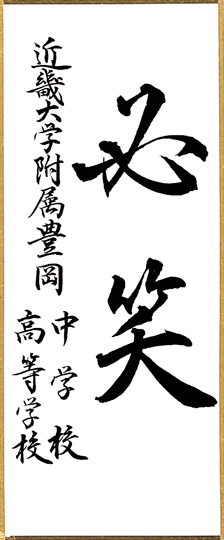 必笑
近畿大学附属豊岡
中学校
高等学校